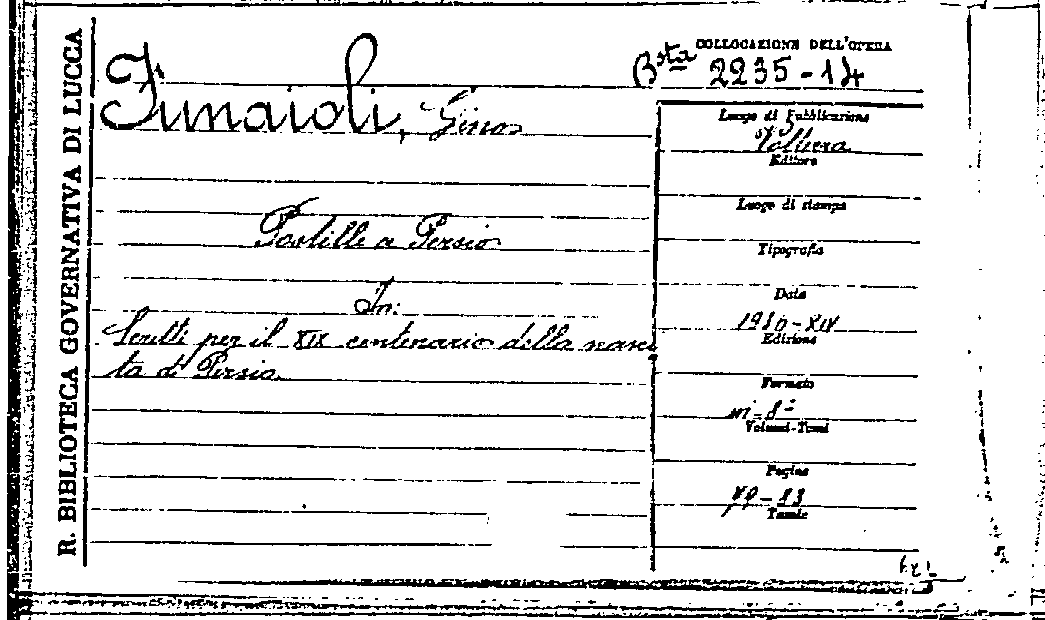 R. BIBLIOTECA GOVERNATIVA DI LUCCA
Funaioli, Gino
Postille a Persio
In:
Scritti per il XIX centenario della nasci
ta di Persio
COLLOCAZIONE DELL'OPERA
Bsta 2235-14
Luogo di Pubblicazione
Volterra
Editore
Luogo di stampa
Tipografia
Data
1936-XIV
Edizione
Formato
in-8°
Volumi-Tomi
Pagine
Tavole